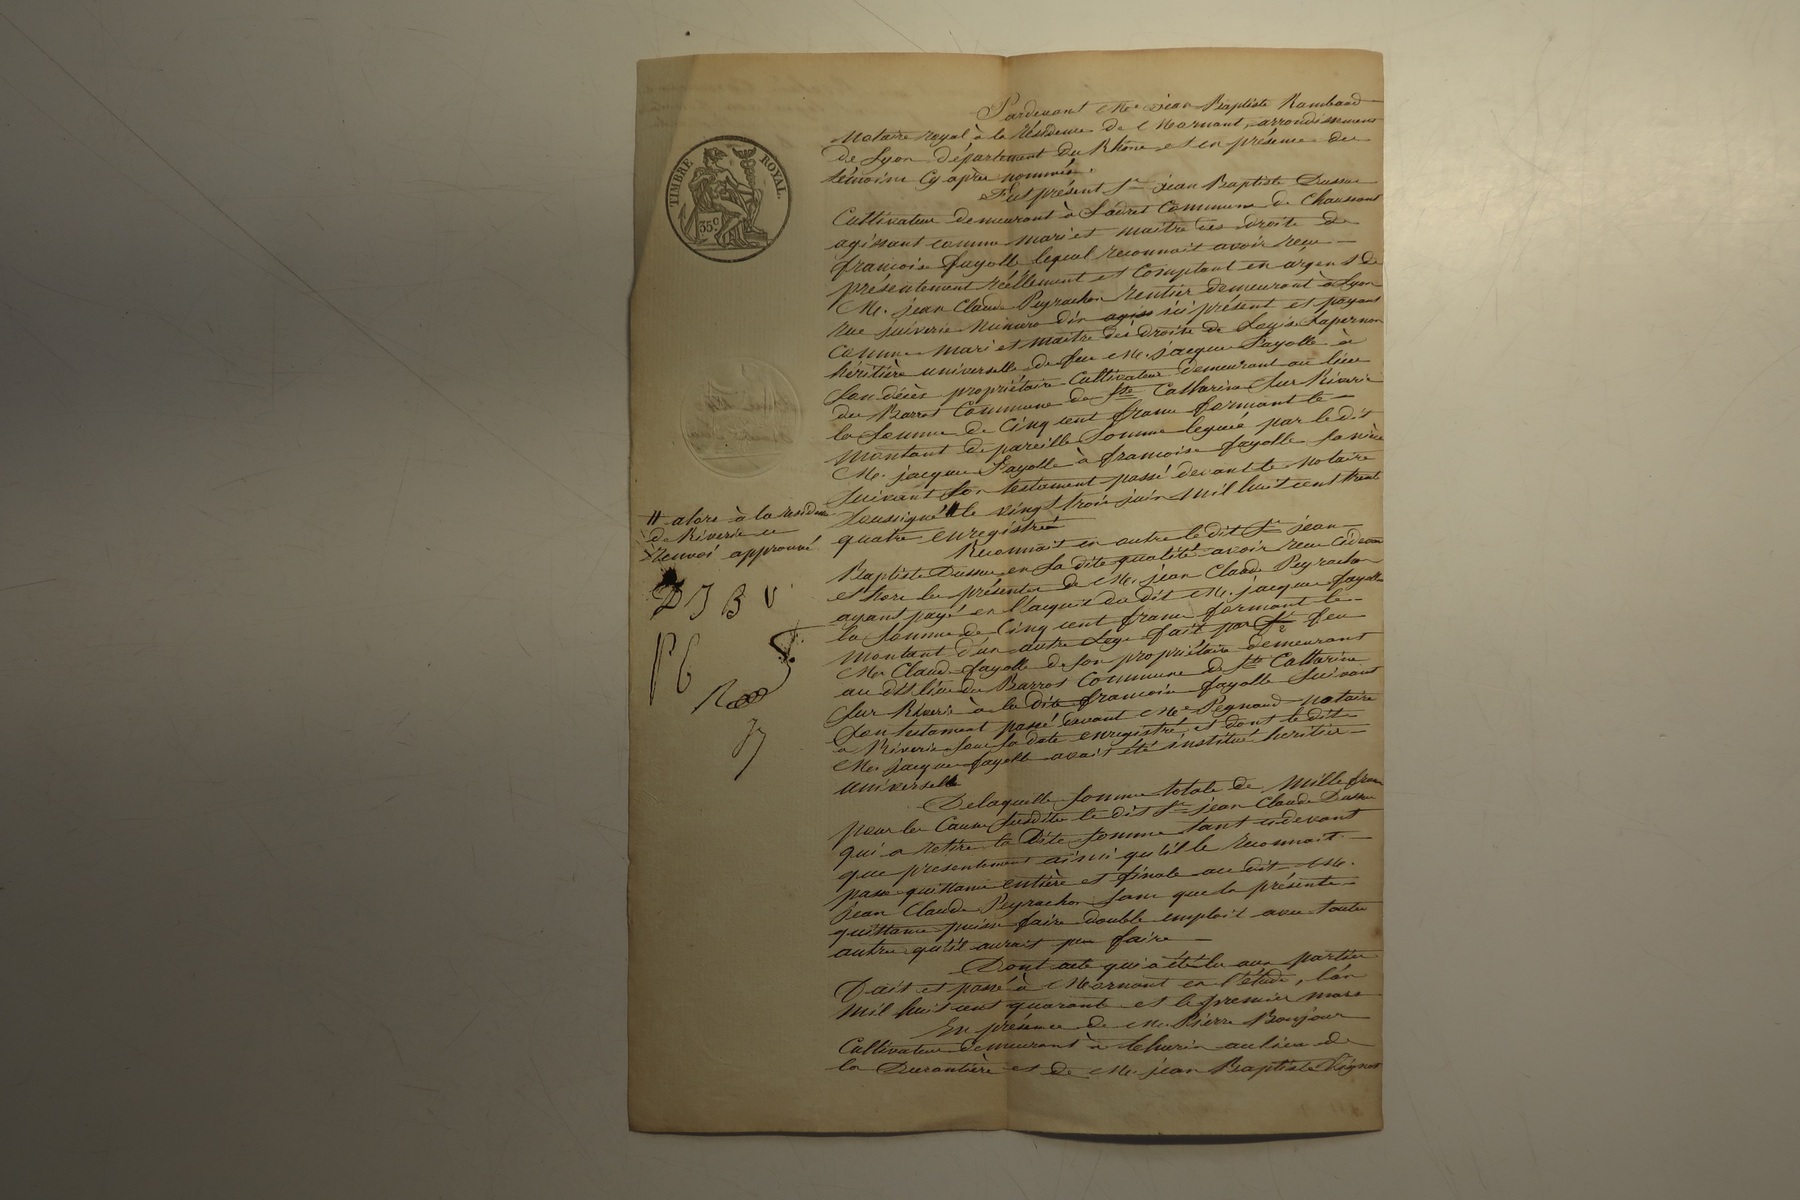 TIMBRE ROYAL
35 c.
Pardevant Me jean Baptiste Rambaud
Notaire royal à la résidence de Mornant, arrondissement
de Lyon, département du Rhône et en présence des
témoins cy après nommés.
Fut présent Sr jean Baptiste
Cultivateur demeurant à Commune de Chaussant
agissant comme mari et maitre des droits de
francoise fayolle lequel reconnait avoir recu
présentement réellement et Comptant en argent de
Mr. jean Claude Peyrachon Rentier demeurant à Lyon
rue juiverie Numéro dix ici présent et payant
comme mari et maitre des droits de
héritière universelle de feu Mr. jacques Fayolle à
son décès propriétaire Cultivateur demeurant au lieu
du Barrot Commune de Ste Catherine Sur Riverie
la somme de Cinq cent francs formant le
montant de pareille Somme leguée par le dit
Mr. jacques Fayolle à francoise fayolle sa nièce
suivant son testament passé devant le notaire
soussigné # le vingt trois juin Mil huit cent trente
quatre enregistré
# alors à la résidence
de Riverie
Renvoi approuvé
D J B V
P C
Reconnait en outre le dit Sr jean
Baptiste en sa dite qualité avoir recu cidevant
et hors les présentes de Mr. jean Claude Peyrachon
ayant payé en l'acquit du dit Mr. jacques fayolle
la somme de Cinq cent francs formant le
montant d'un autre Legs fait par feu
Mr Claude fayolle de son propriétaire demeurant
au dit lieu du Barrot Commune de Ste Catherine
Sur Riverie à la dite francoise fayolle Suivant
Son testament passé devant Me notaire
à Riverie sous sa date enregistré, et dont le dit
Mr. jacques fayolle avait été institué héritier
universelle
Delaquelle somme totale de Mille francs
pour les Causes Susdites le dit Sr jean Claude
qui a retiré la Dite Somme tant cidevant
que présentement ainsi qu'il le reconnait
passe quittance entière et finale au dit Mr.
jean Claude Peyrachon sans que la présente
quittance puisse faire double emploit avec toute
autre qu'il aurait pu faire
Dont acte qui a été lu aux parties
Fait et passé à Mornant en l'étude, l'an
Mil huit cent quarant et le premier mars
En présence de Mr Pierre Bonjour
Cultivateur demeurant à au lieu de
la Durantière et de Mr. jean Baptiste